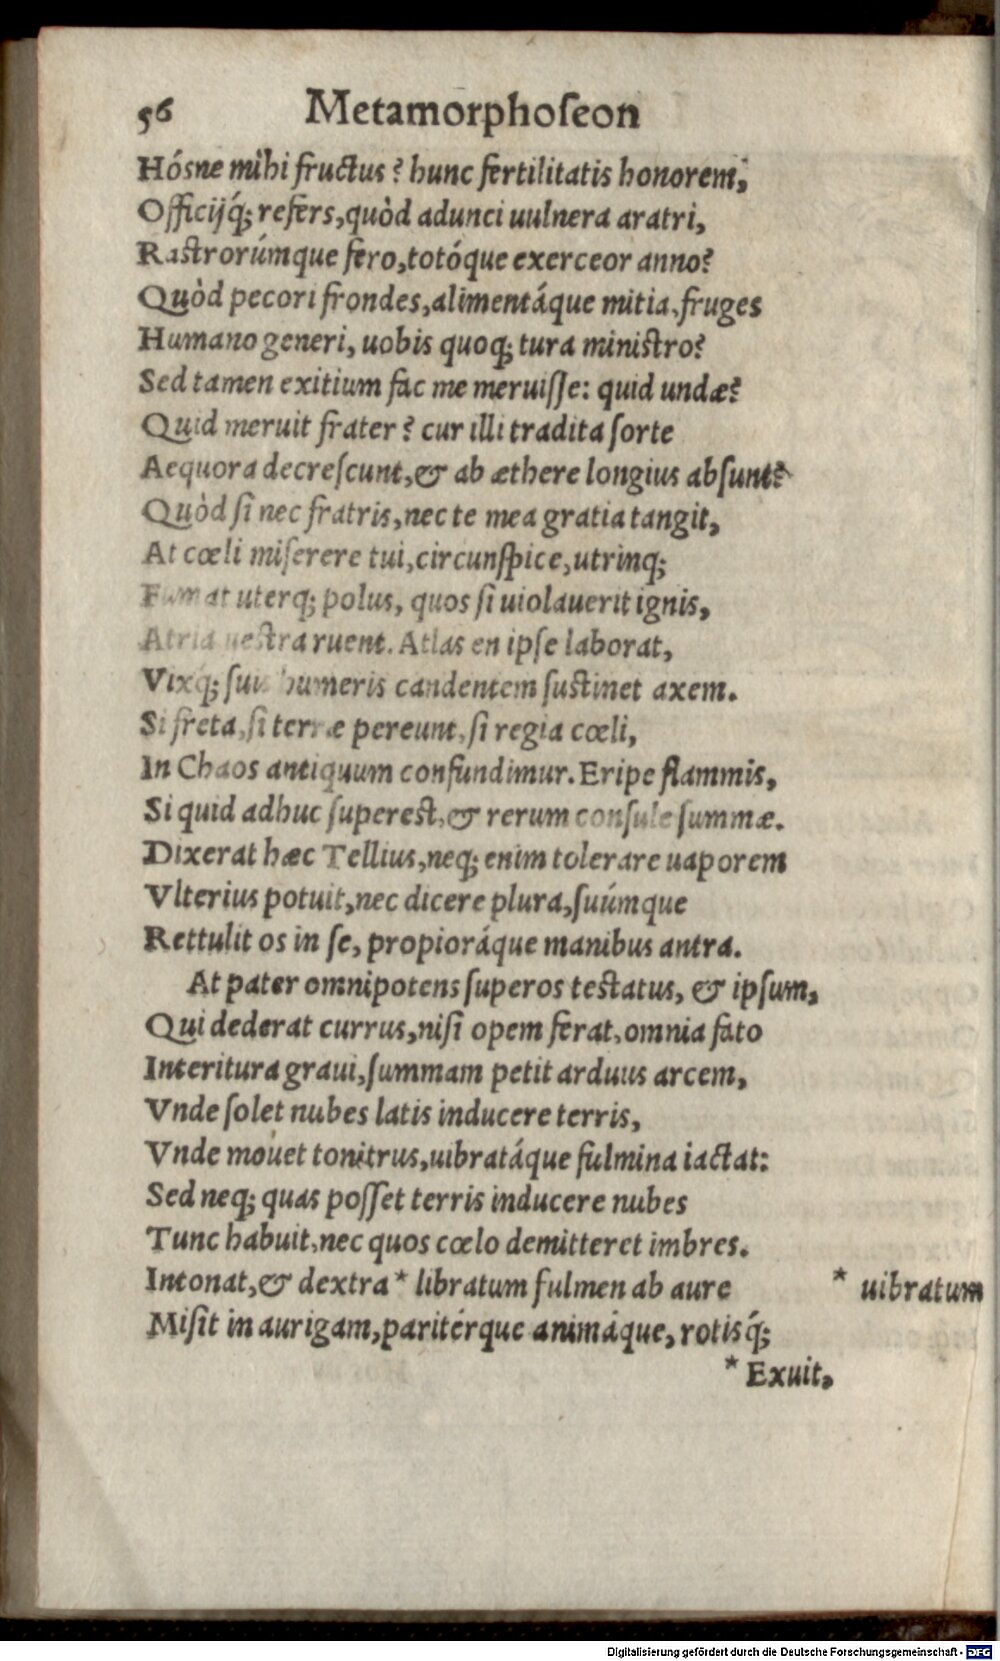 56 Metamorphoſeon
Hósne mihi fructus? hunc fertilitatis honorem,
Officijq́; refers, quòd adunci uulnera aratri,
Rastrorúmque fero, totóque exerceor anno?
Quòd pecori frondes, alimentáque mitia, fruges
Humano generi, uobis quoq; tura ministro?
Sed tamen exitium fac me meruiſſe: quid undæ?
Quid meruit frater? cur illi tradita ſorte
Aequora decreſcunt, & ab æthere longius abſunt?
Quòd ſi nec fratris, nec te mea gratia tangit,
At cœli miſerere tui, circunſpice, utrinq;
Fumat uterq; polus, quos ſi uiolauerit ignis,
Atria ueſtra ruent. Atlas en ipſe laborat,
Vixq́; ſuis humeris candentem ſustinet axem.
Si freta, ſi terræ pereunt, ſi regia cœli,
In Chaos antiquum confundimur. Eripe flammis,
Si quid adhuc ſuperest, & rerum conſule ſummæ.
Dixerat hæc Tellius, neq; enim tolerare uaporem
Vlterius potuit, nec dicere plura, ſuúmque
Rettulit os in ſe, propioráque manibus antra.
At pater omnipotens ſuperos testatus, & ipſum,
Qui dederat currus, niſi opem ferat, omnia fato
Interitura graui, ſummam petit arduus arcem,
Vnde ſolet nubes latis inducere terris,
Vnde mouet tonitrus, uibratáque fulmina iactat:
Sed neq; quas poſſet terris inducere nubes
Tunc habuit, nec quos cœlo demitteret imbres.
Intonat, & dextra * libratum fulmen ab aure * uibratum
Miſit in aurigam, paritérque animáque, rotisq́;
* Exuit,
Digitalisierung gefördert durch die Deutsche Forschungsgemeinschaft - DFG